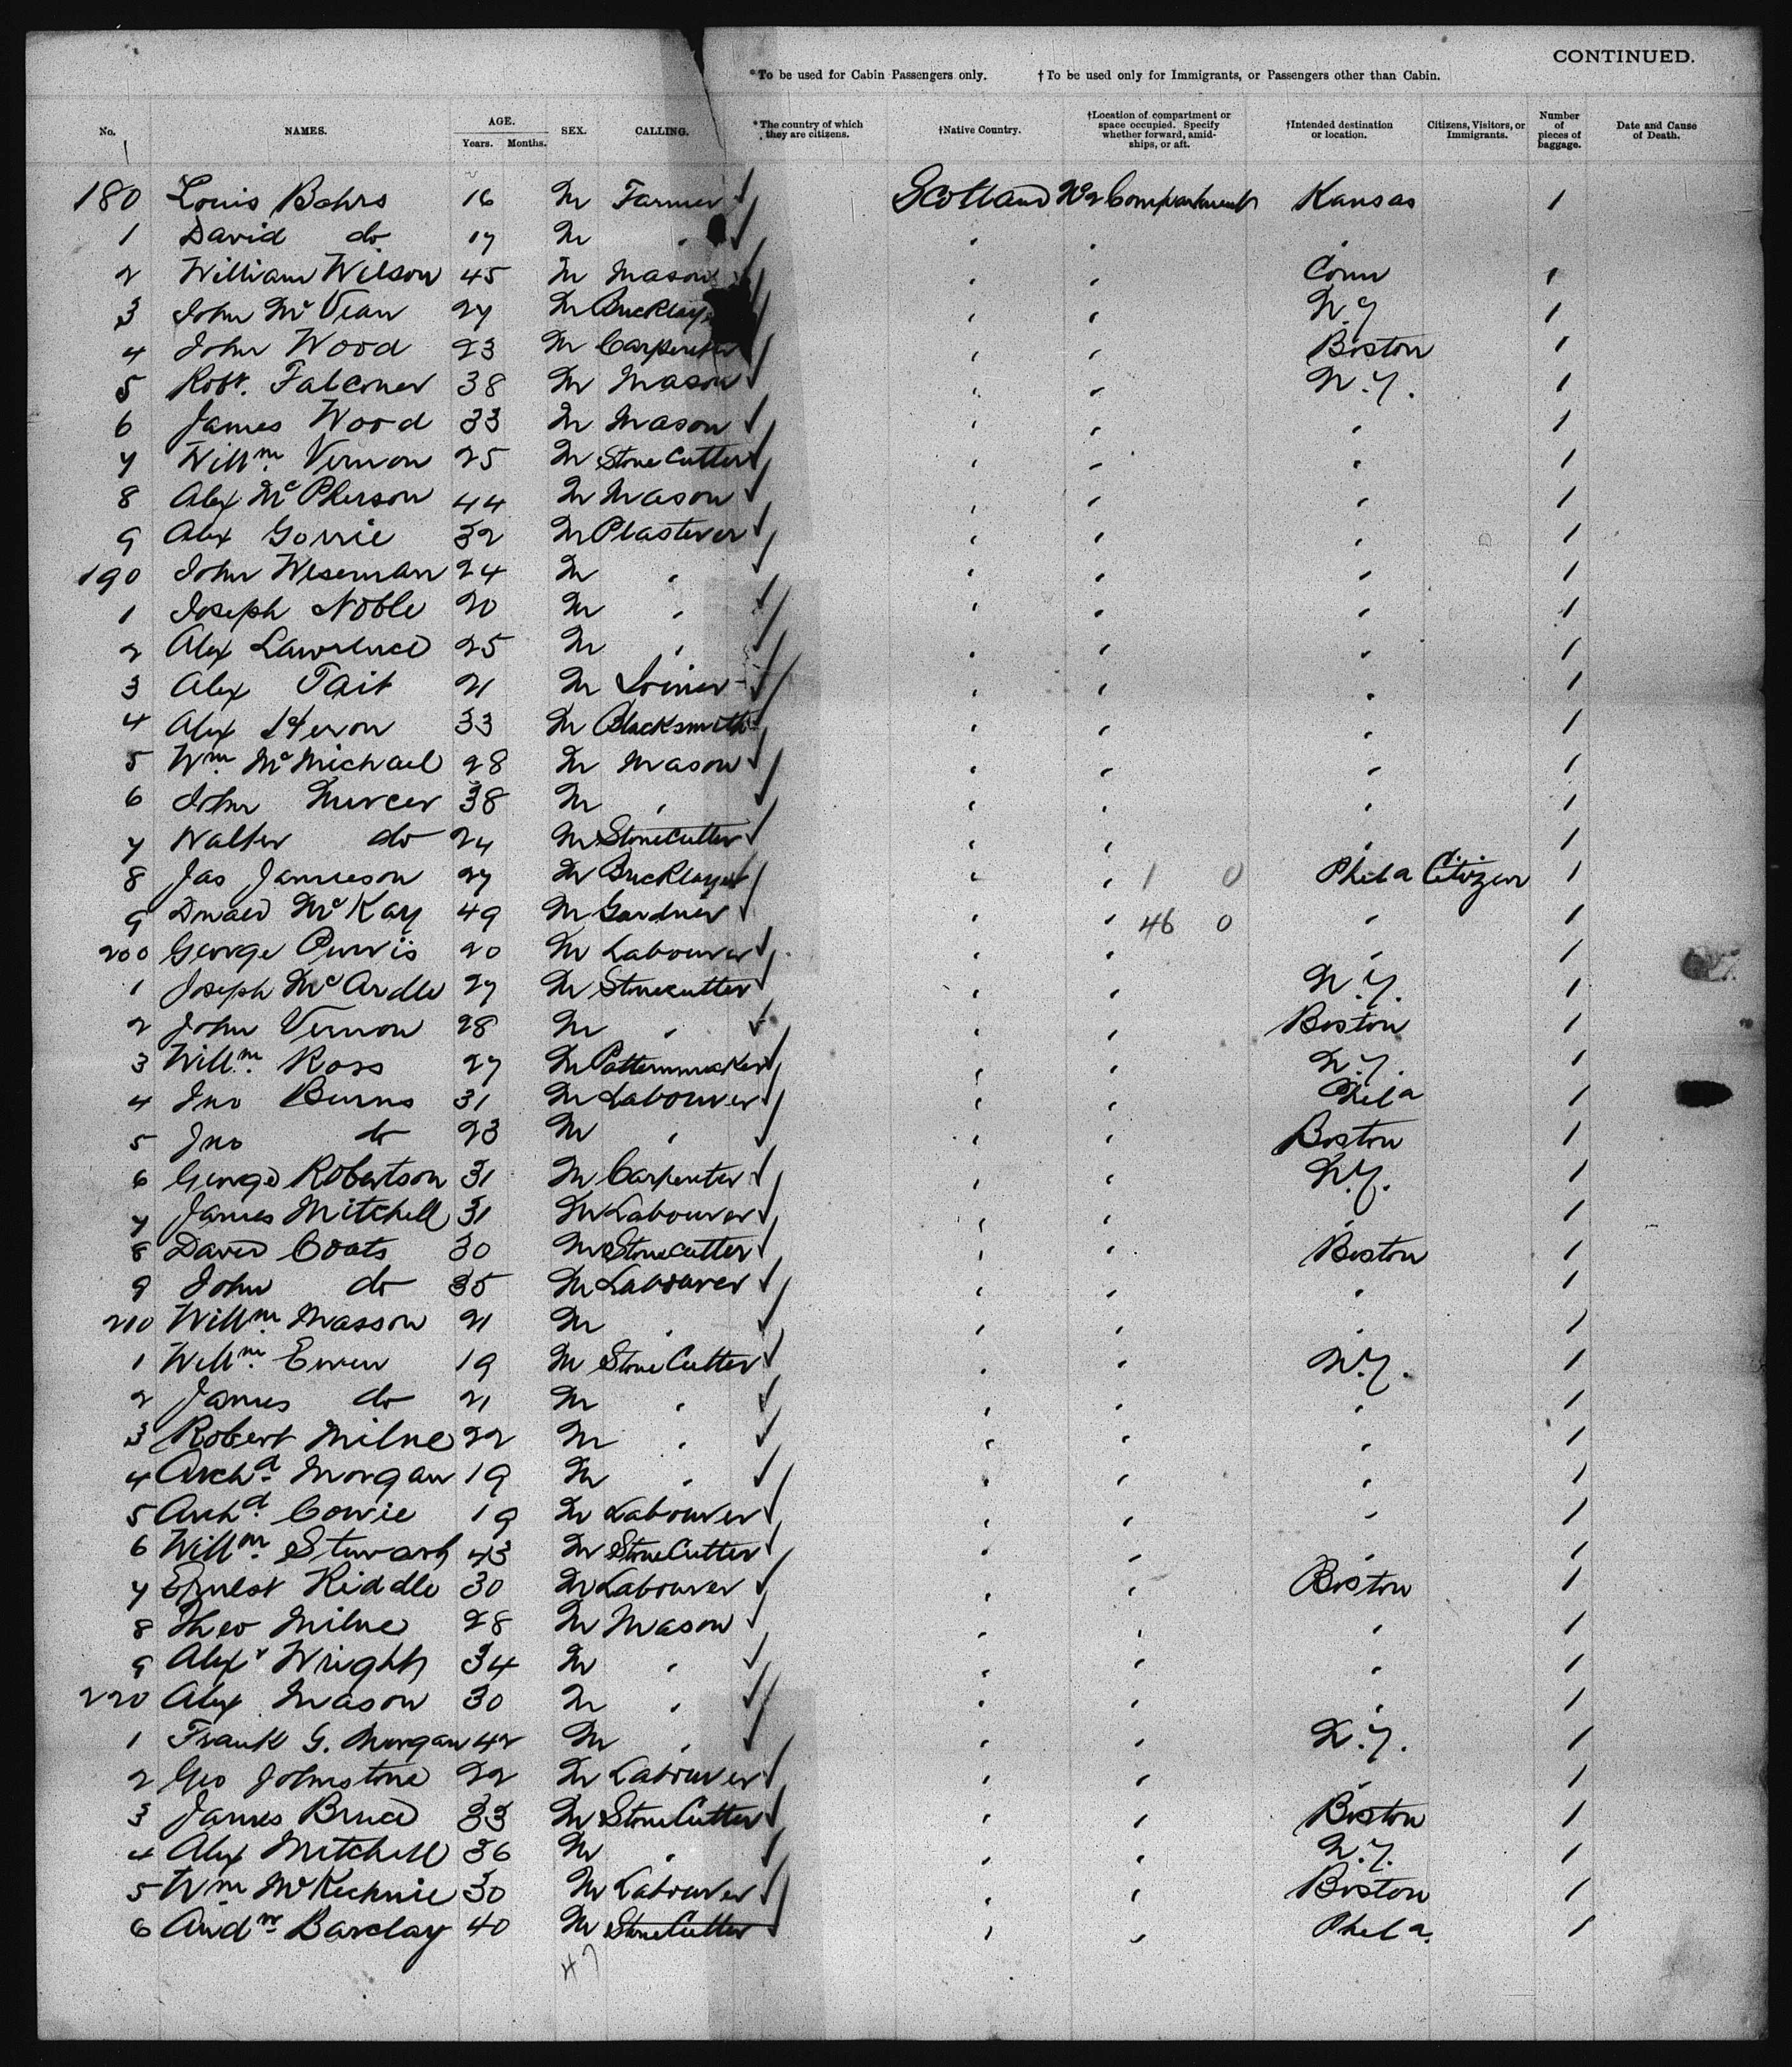 CONTINUED.
*To be used for Cabin Passengers only. †To be used only for Immigrants, or Passengers other than Cabin.
No. NAMES. AGE. Years. Months. SEX. CALLING. *The country of which they are citizens. †Native Country. †Location of compartment or space occupied. Specify whether forward, amidships, or aft. †Intended destination or location. Citizens, Visitors, or Immigrants. Number of pieces of baggage. Date and Cause of Death.
180 Louis Bahrs 16 M Farmer Scotland No 2 Compartment Kansas 1
1 David do 17 M " " " "
2 William Wilson 45 M Mason " " Conn 1
3 John McVean 27 M Bricklayer " " N.Y 1
4 John Wood 23 M Carpenter " " Boston 1
5 Robt. Falconer 38 M Mason " " N.Y. 1
6 James Wood 33 M Mason " " " 1
7 Willm. Vernon 25 M Stone Cutter " " " 1
8 Alex McPherson 44 M Mason " " " 1
9 Alex Gorrie 32 M Plasterer " " " 1
190 John Wiseman 24 M " " " " 1
1 Joseph Noble 20 M " " " " 1
2 Alex Lawrence 25 M " " " " 1
3 Alex Tait 21 M Joiner " " " 1
4 Alex Heron 33 M Blacksmith " " " 1
5 Wm McMichael 28 M Mason " " " 1
6 John Mercer 38 M " " " " 1
7 Walter do 24 M StoneCutter " " " 1
8 Jas Jamieson 27 M Bricklayer " " 1 0 Phila Citizen 1
9 Donald McKay 49 M Gardner " " 46 0 " 1
200 George Purvis 20 M Labourer " " " 1
1 Joseph McArdle 27 M Stonecutter " " N.Y. 1
2 John Vernon 28 M " " " Boston 1
3 Willm. Ross 27 M Patternmaker " " N.Y. 1
4 Jno Burns 31 M Labourer " " Phila 1
5 Jno do 23 M " " " Boston 1
6 George Robertson 31 M Carpenter " " N.Y. 1
7 James Mitchell 31 M Labourer " " " 1
8 David Coats 30 M Stonecutter " " Boston 1
9 John do 35 M Labourer " " " 1
210 Willm. Masson 21 M " " " " 1
1 Willm. Ewen 19 M Stone Cutter " " N.Y. 1
2 James do 21 M " " " " 1
3 Robert Milne 22 M " " " " 1
4 Archd. Morgan 19 M " " " " 1
5 Archd. Cowie 19 M Labourer " " " 1
6 Willm. Stewart 43 M StoneCutter " " " 1
7 Ernest Riddle 30 M Labourer " " Boston 1
8 Theo Milne 28 M Mason " " " 1
9 Alexr Wright 34 M " " " " 1
220 Alex Mason 30 M " " " " 1
1 Frank G. Morgan 42 M " " " N.Y. 1
2 Geo Johnstone 22 M Labourer " " " 1
3 James Bruce 33 M StoneCutter " " Boston 1
4 Alex Mitchell 36 M " " " N.Y. 1
5 Wm McKechnie 30 M Labourer " " Boston 1
6 Andw Barclay 40 M StoneCutter " " Phila. 1
47